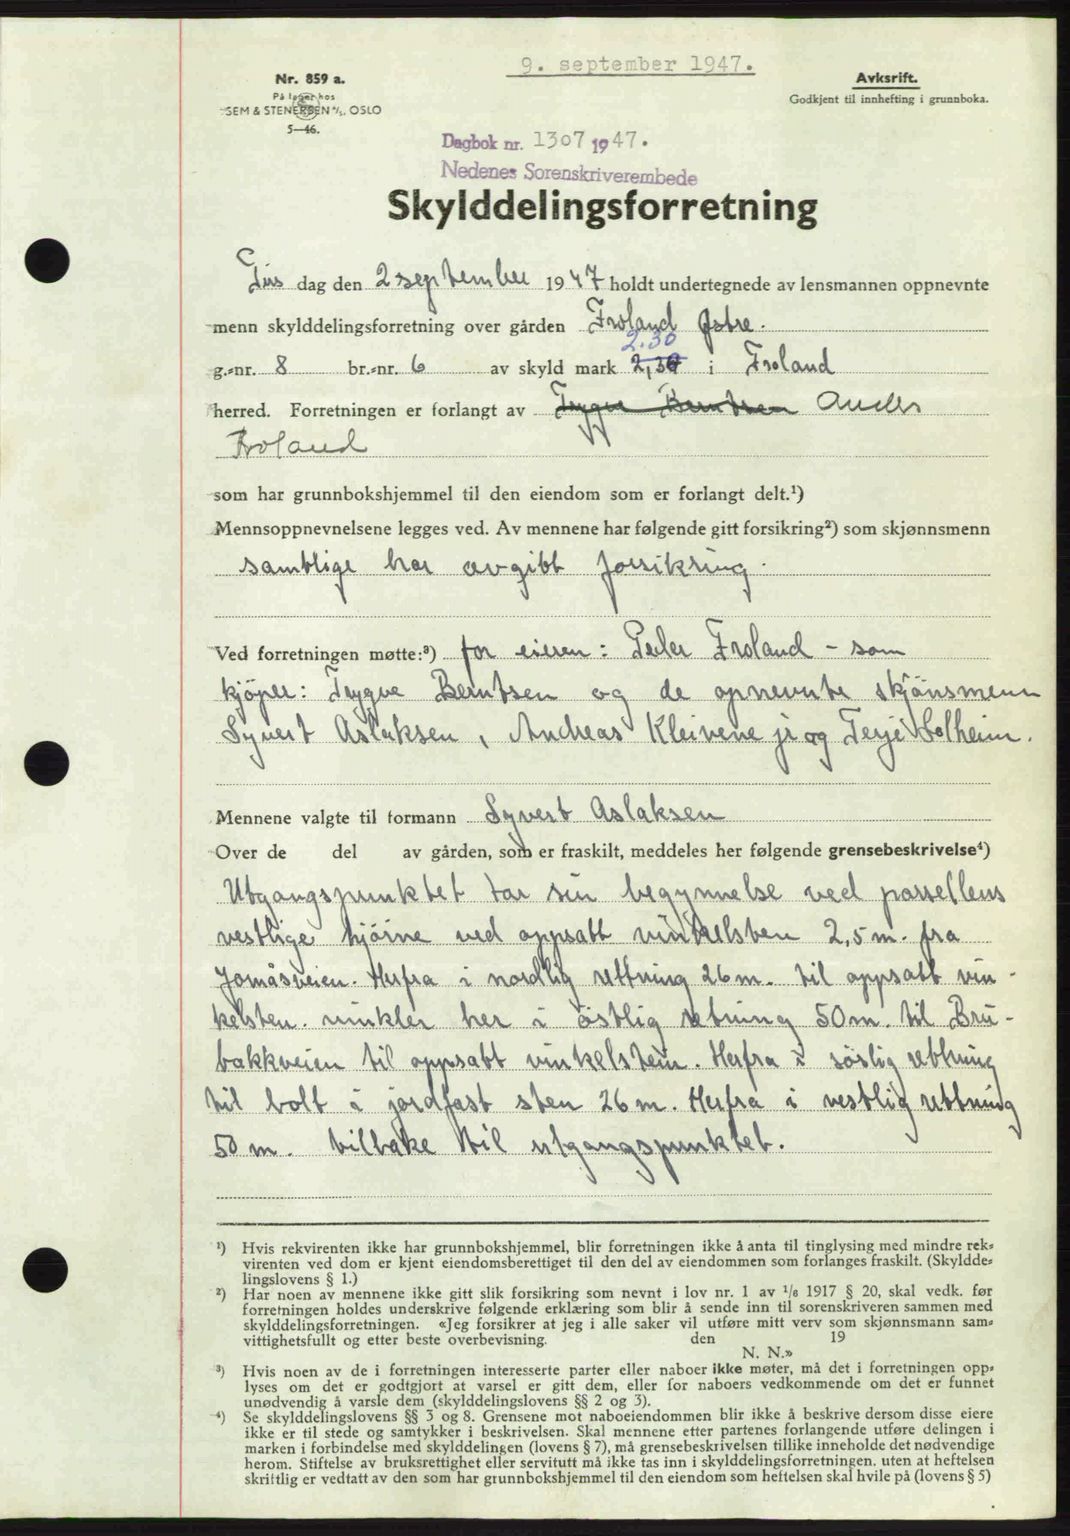 9. september 1947.
Nr. 859 a.
På lager hos
SEM & STENERSEN A/S, OSLO
5—46.
Avskrift.
Godkjent til innhefting i grunnboka.
Dagbok nr. 1307 1947.
Nedenes Sorenskriverembede
Skylddelingsforretning
Tirs dag den 2 september 1947 holdt undertegnede av lensmannen oppnevnte
menn skylddelingsforretning over gården Froland Østre.
2.30
g.-nr. 8 br.-nr. 6 av skyld mark 2,30 i Froland
herred. Forretningen er forlangt av Trygve Berntsen Anders
Froland
som har grunnbokshjemmel til den eiendom som er forlangt delt.¹)
Mennsoppnevnelsene legges ved. Av mennene har følgende gitt forsikring²) som skjønnsmenn
samtlige har avgitt forsikring.
Ved forretningen møtte:³) for eieren: Peder Froland - som
kjøper: Trygve Berntsen og de opnevnte skjönsmenn
Syvert Aslaksen, Andreas Kleivene jr og Terje Solheim.
Mennene valgte til formann Syvert Aslaksen
Over de del av gården, som er fraskilt, meddeles her følgende grensebeskrivelse⁴)
Utgangspunktet tar sin begynnelse ved parsellens
vestlige hjörne ved oppsatt vinkelsten 2,5 m. fra
Jomåsveien. Herfra i nordlig rettning 26 m. til oppsatt vin-
kelsten. vinkler her i östlig retning 50 m. til Bru-
bakkveien til oppsatt vinkelstein. Herfra i sörlig rettning
til bolt i jordfast sten 26 m. Herfra i vestlig rettning
50 m. tilbake til utgangspunktet.
¹) Hvis rekvirenten ikke har grunnbokshjemmel, blir forretningen ikke å anta til tinglysing med mindre rek-
virenten ved dom er kjent eiendomsberettiget til den del av eiendommen som forlanges fraskilt. (Skyldde-
lingslovens § 1.)
²) Har noen av mennene ikke gitt slik forsikring som nevnt i lov nr. 1 av 1/6 1917 § 20, skal vedk. før
forretningen holdes underskrive følgende erklæring som blir å sende inn til sorenskriveren sammen med
skylddelingsforretningen. «Jeg forsikrer at jeg i alle saker vil utføre mitt verv som skjønnsmann sam-
vittighetsfullt og etter beste overbevisning. den 19
N. N.»
³) Hvis noen av de i forretningen interesserte parter eller naboer ikke møter, må det i forretningen opp-
lyses om det er godtgjort at varsel er gitt dem, eller for naboers vedkommende om det er funnet
unødvendig å varsle dem (skylddelingslovens §§ 2 og 3).
⁴) Se skylddelingslovens §§ 3 og 8. Grensene mot naboeiendommen blir ikke å beskrive dersom disse eiere
ikke er til stede og samtykker i beskrivelsen. Skal mennene etter partenes forlangende utføre delingen i
marken i forbindelse med skylddelingen (lovens § 7), må grensebeskrivelsen tillike inneholde det nødvendige
herom. Stiftelse av bruksrettighet eller servitutt må ikke tas inn i skylddelingsforretningen, uten at heftelsen
skriftlig er vedtatt av den som har grunnbokshjemmel til den eiendom som heftelsen skal hvile på (lovens § 5)